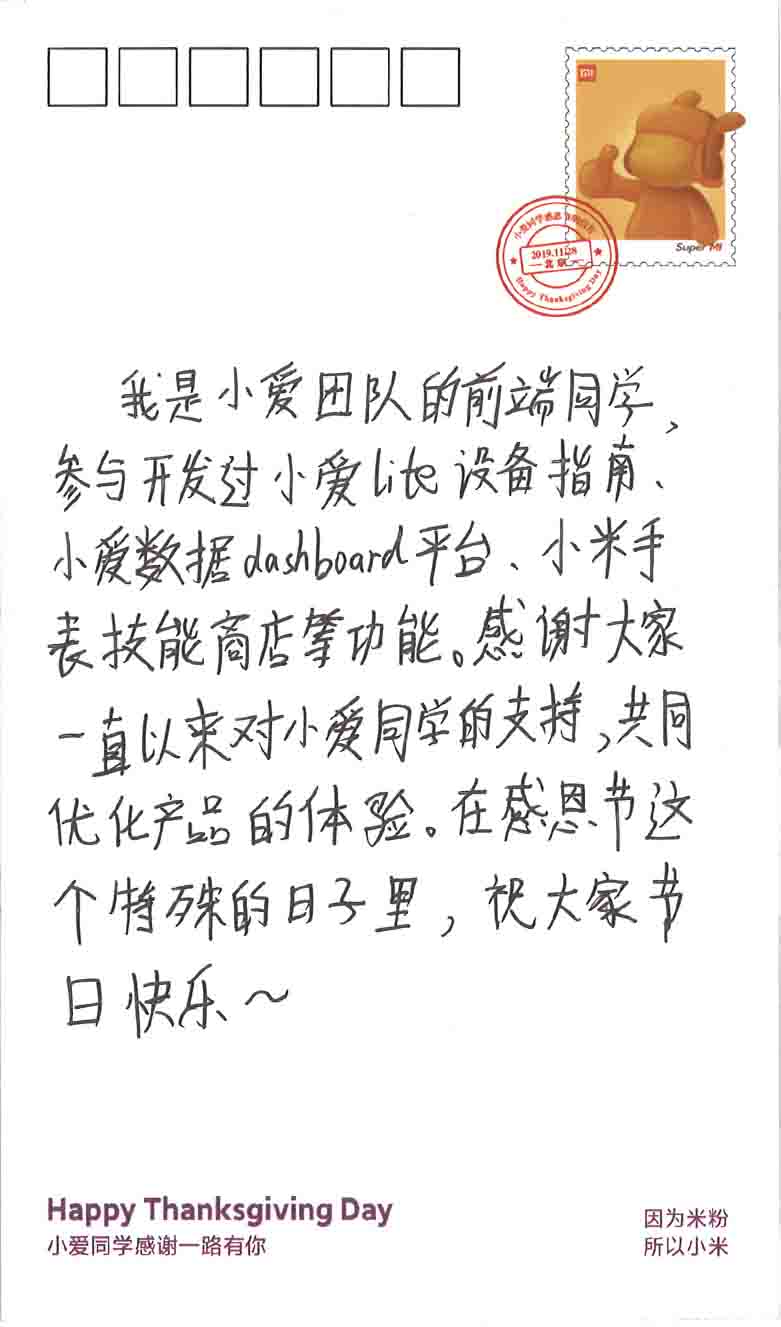 小爱同学感恩有你
2019.11.28
北京
Happy Thanksgiving Day
Super MI
我是小爱团队的前端同学,
参与开发过小爱lite设备指南、
小爱数据dashboard平台、小米手
表技能商店等功能。感谢大家
一直以来对小爱同学的支持,共同
优化产品的体验。在感恩节这
个特殊的日子里,祝大家节
日快乐~
Happy Thanksgiving Day
小爱同学感谢一路有你
因为米粉
所以小米